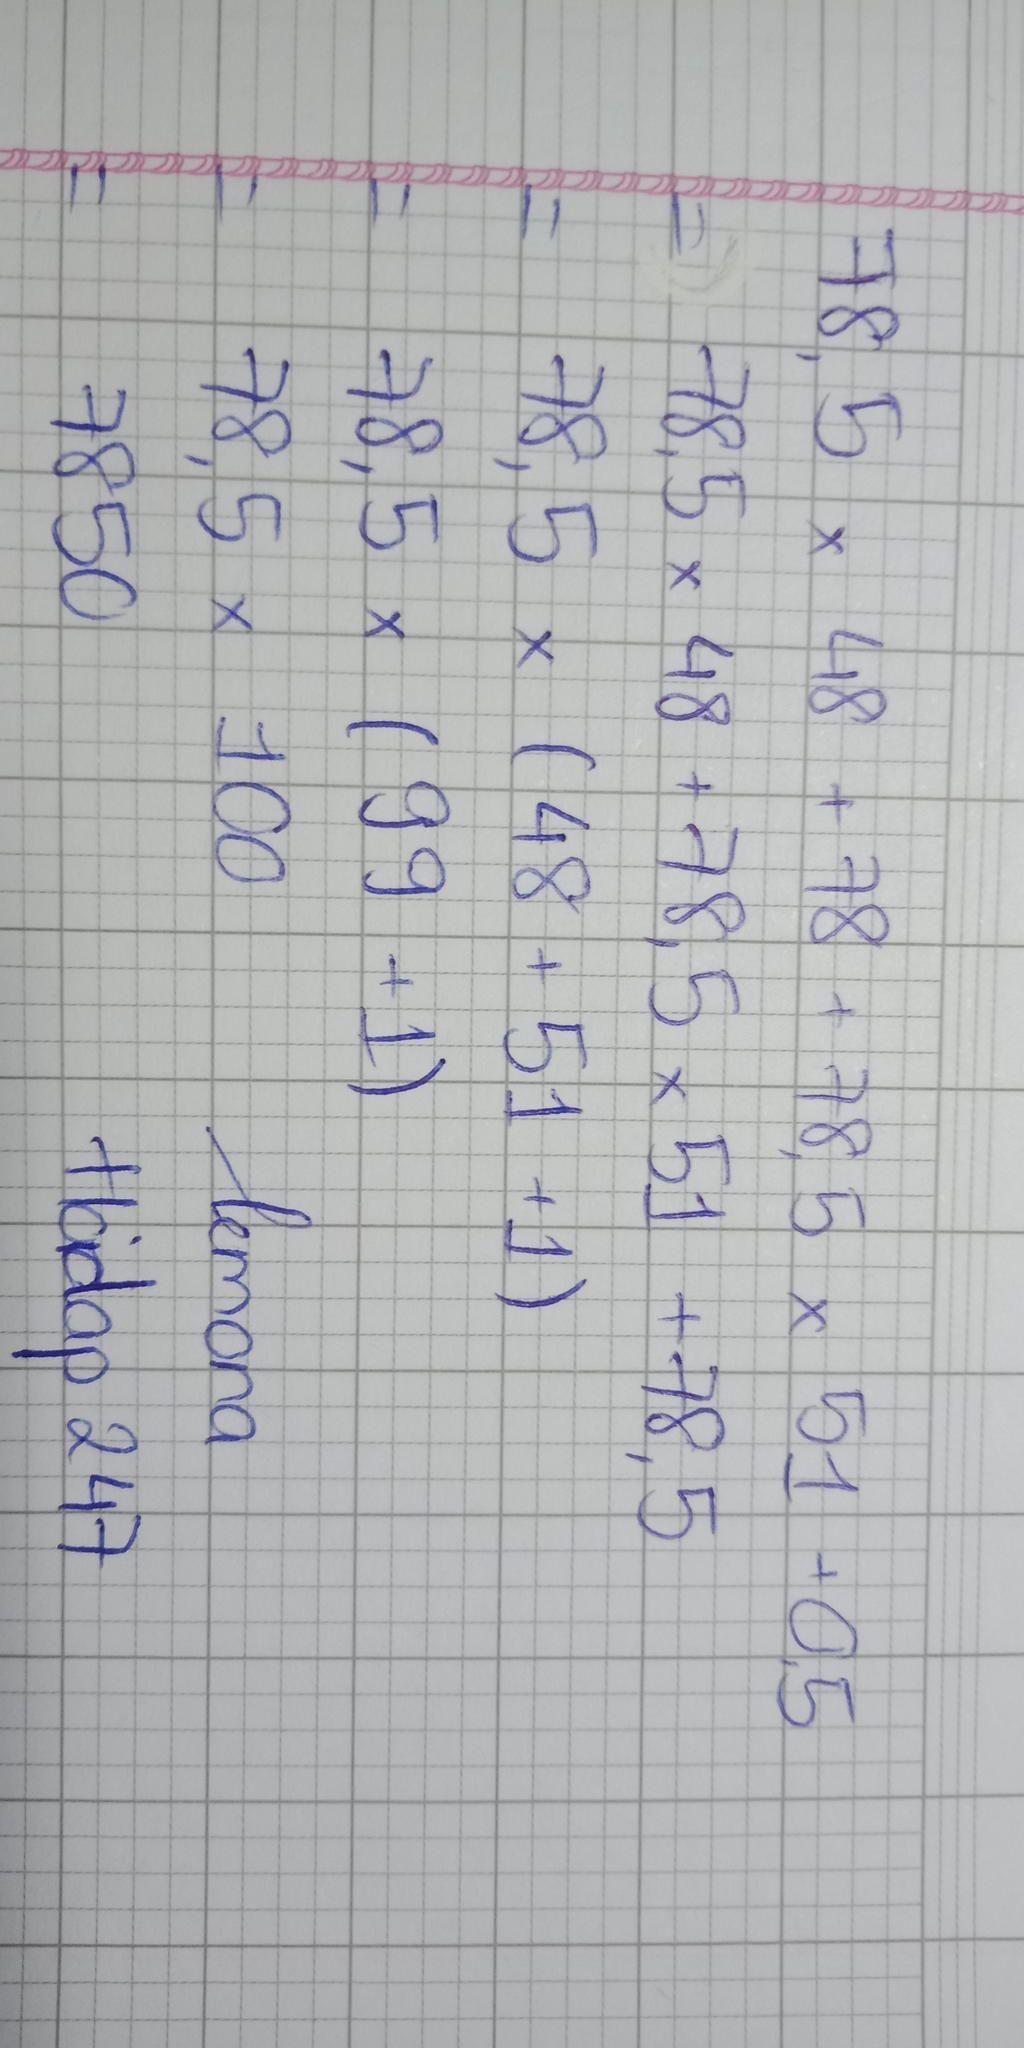 78,5 x 48 + 78 + 78,5 x 51 + 0,5
= 78,5 x 48 + 78,5 x 51 + 78,5
= 78,5 x (48 + 51 + 1)
= 78,5 x (99 + 1)
= 78,5 x 100
= 7850
lemona
Hoidap 247